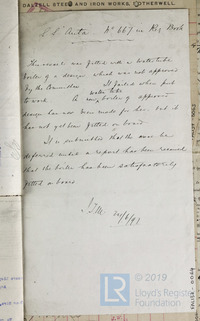 DALZELL STEEL AND IRON WORKS, MOTHERWELL.
S.S. "Anta" No 667 in Reg Book
This vessel was fitted with a water tube
boiler of a design which was not approved
by the Committee. It failed when put
to work. A new water tube boiler of approved
design has now been made for her but it
has not yet been fitted on board.
It is submitted that the case be
deferred until a report has been received
that the boiler has been satisfactorily
fitted on board.
© 2019
LR
Lloyd's Register
Foundation